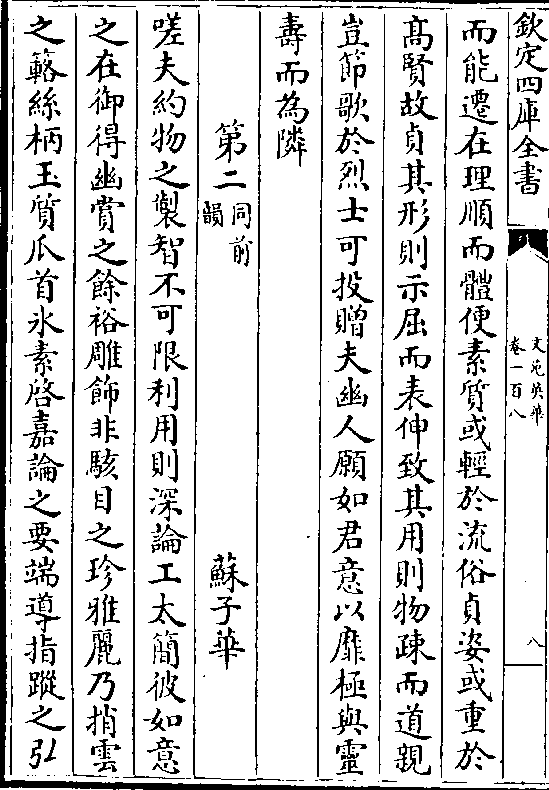 欽定四庫全書
文苑英華
卷一百八
八
而能遷在理順而體便素質或輕於流俗貞姿或重於
髙賢故貞其形則示屈而表伸致其用則物疎而道親
豈節歌於烈士可投贈夫幽人願如君意以靡極與靈
壽而為隣
第二 同前韻 蘇子華
嗟夫約物之製智不可限利用則深論工太簡彼如意
之在御得幽賞之餘裕雕飾非駭目之珍雅麗乃捎雲
之簵絲柄玉質爪首氷素啓嘉論之要端導指蹤之弘